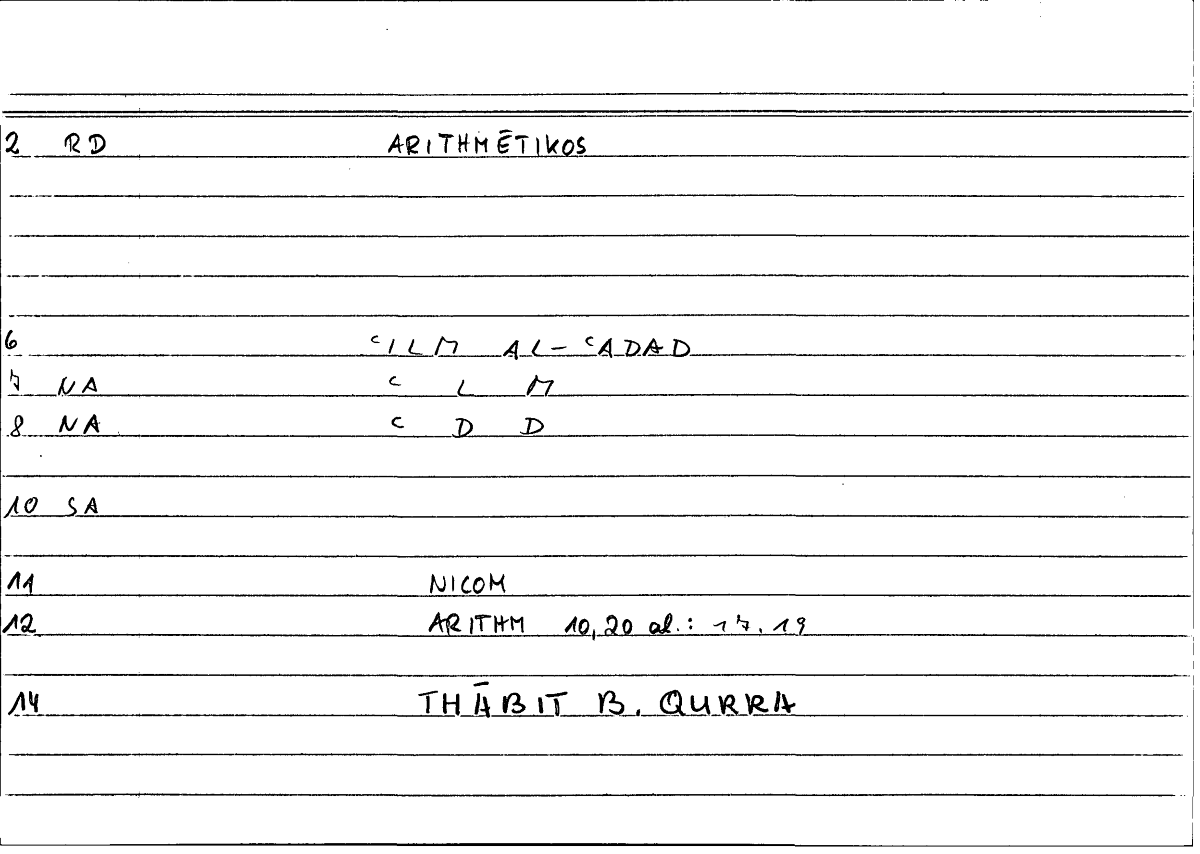 2 RD ARITHMĒTIKOS
6 ʿILM AL-ʿADAD
7 NA ʿ L M
8 NA ʿ D D
10 SA
11 NICOM
12 ARITHM 10,20 al.: 17.19
14 THĀBIT B. QURRA